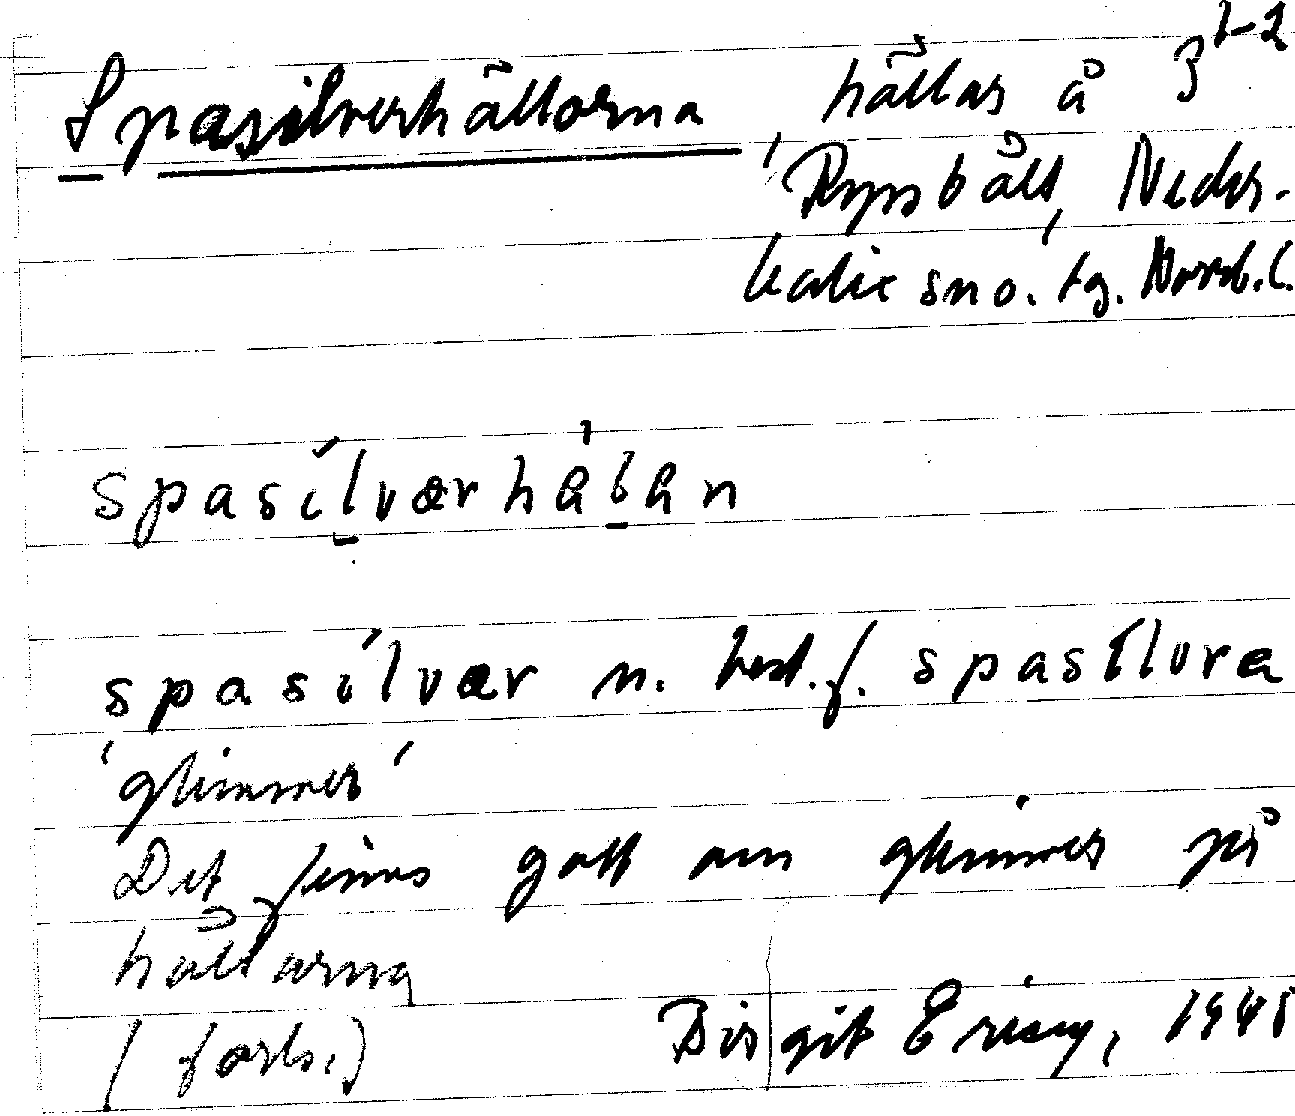 Spasilverhällorna hällar å 3 1-2
Rysbält, Neder-
kalix sn o. tg. Norrb. l.
spasílværhä̀lan
spasílvær n. best. f. spasílvra
'glimmer'
Det finns gott om glimmer på
hällarna
(forts.) Birgit Ericy, 1945